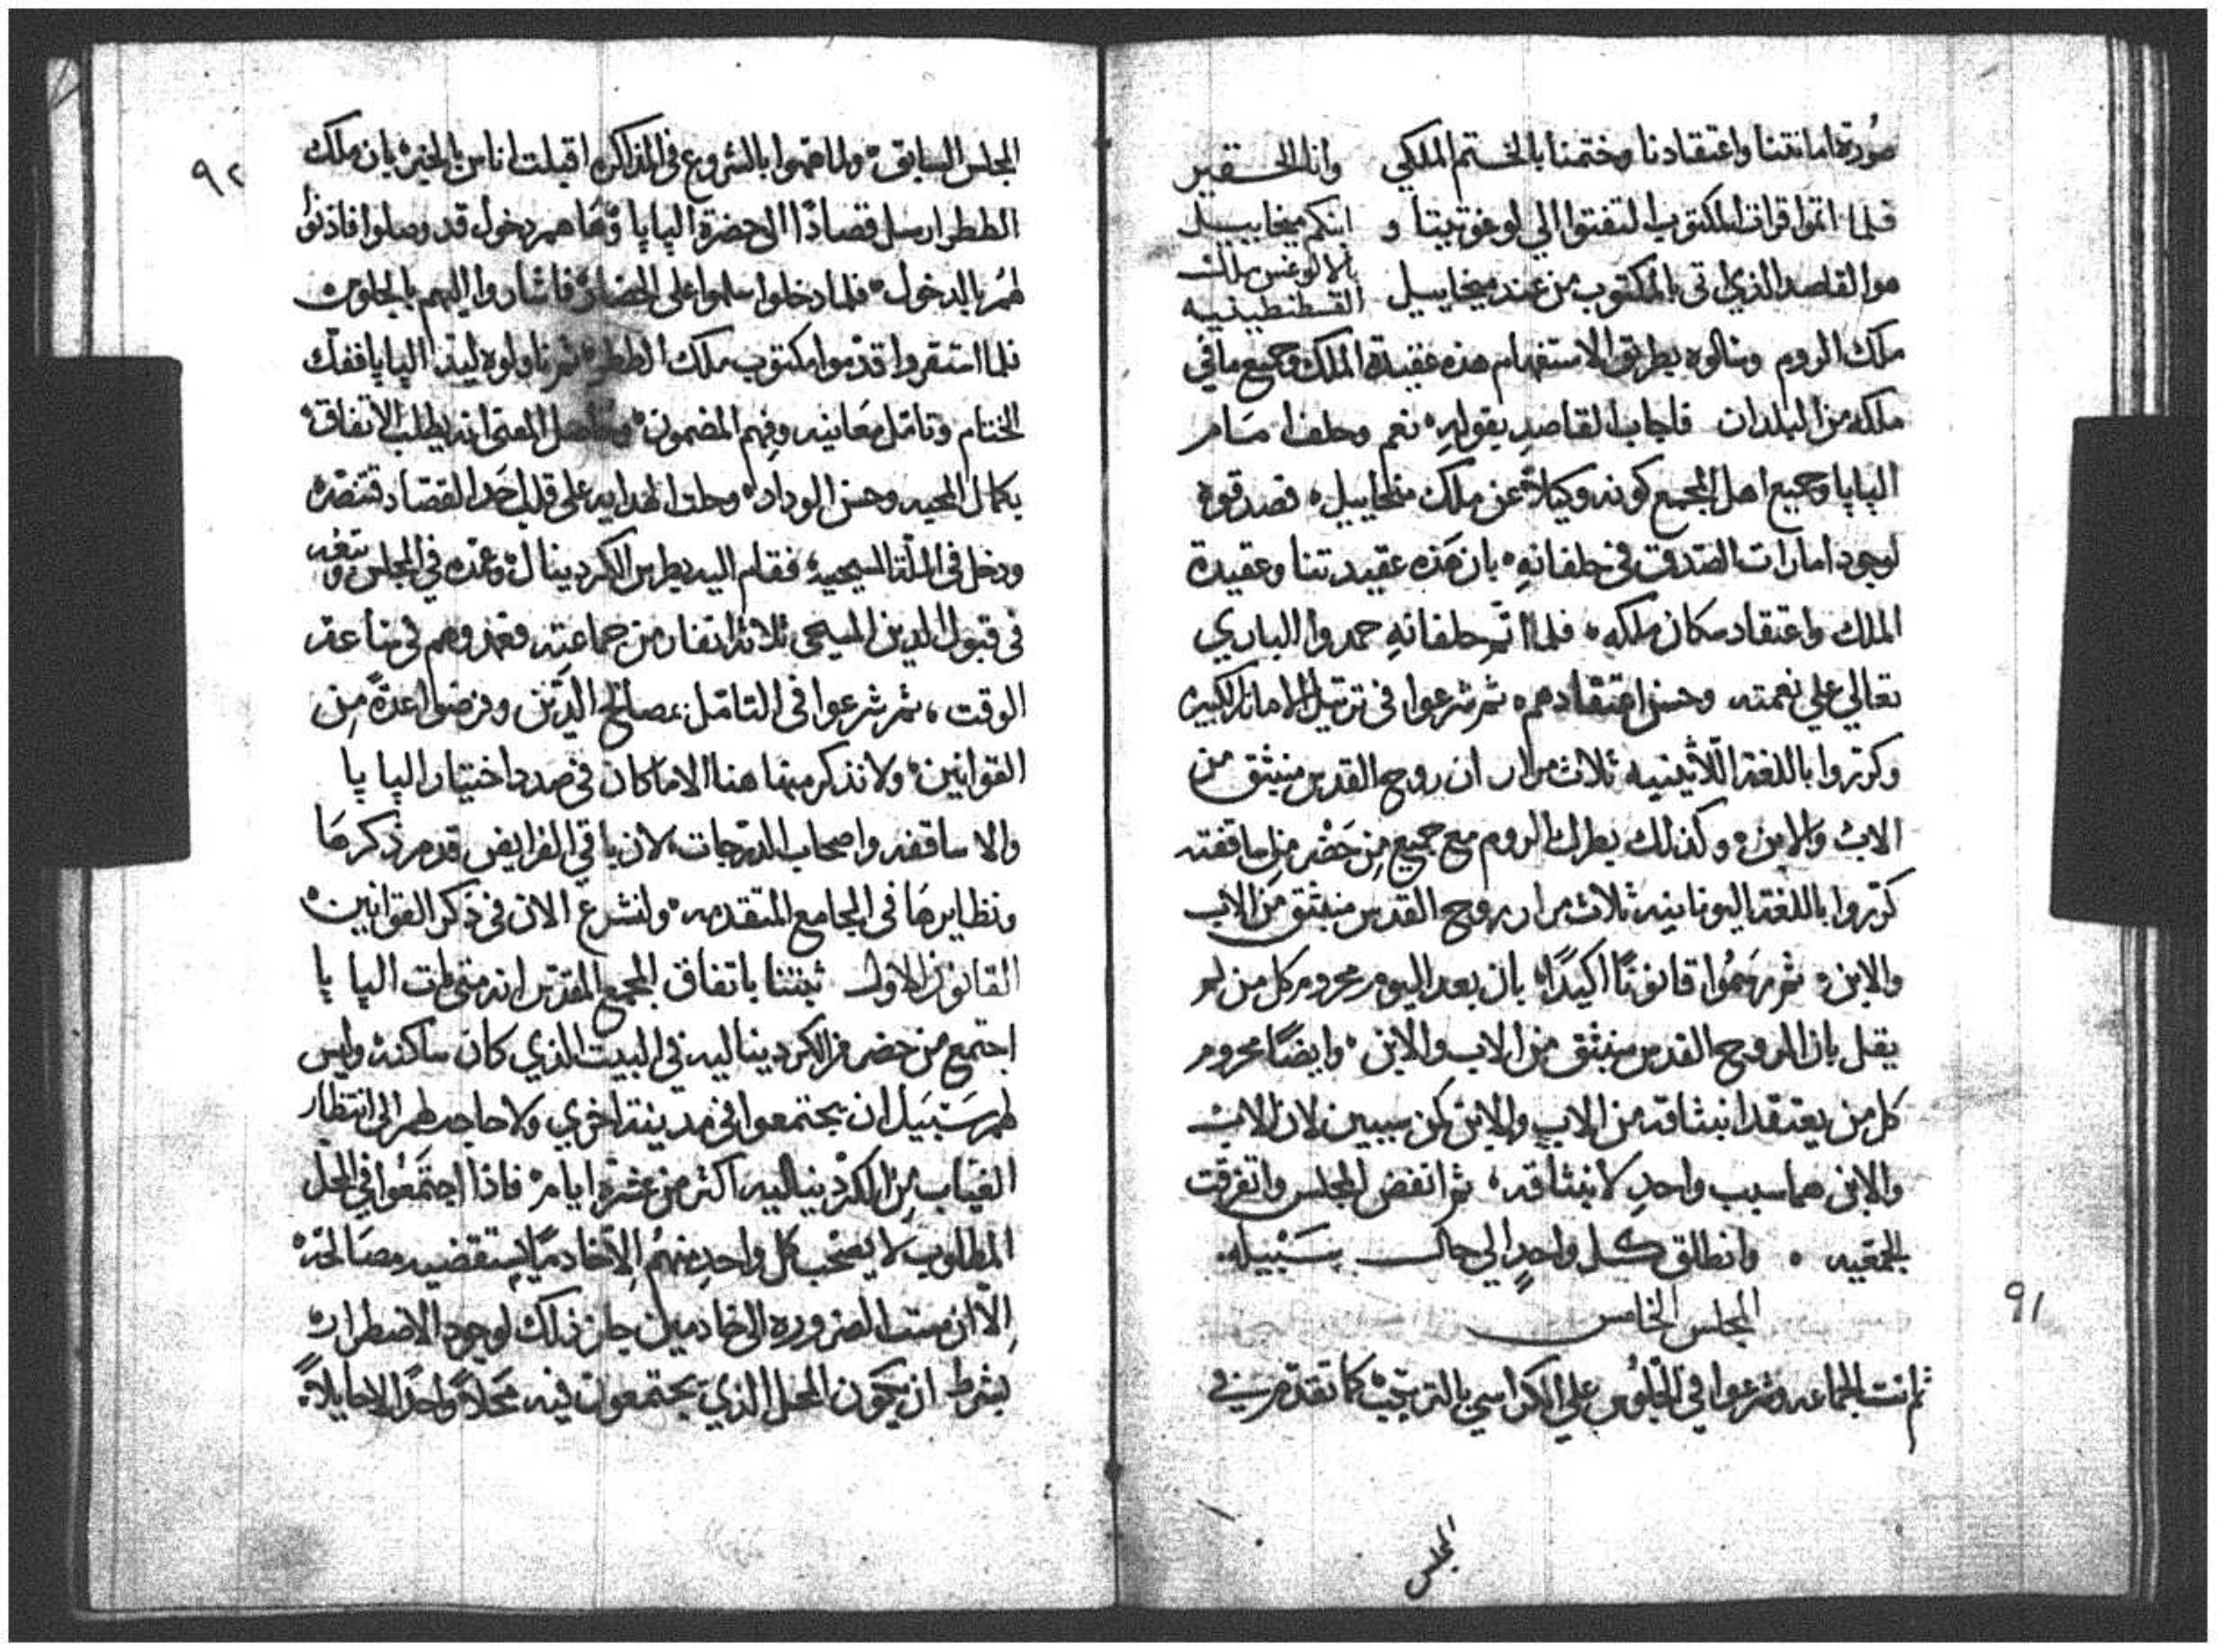 صورة امانتنا واعتقادنا وختمنا بالختم الملكي وانا الحقير
فلما اتموا قراة المكتوب التفتوا الي لوغوتيتا و ابنكم ميخاييل
بالالوغس ملك
هو القاصد الذي اتى بالمكتوب من عند ميخاييل القسطنطينيه
ملك الروم وسالوه بطريق الاستفهام هذه عقيدة الملك وجميع ما في
ملكه من البلدان فاجاب القاصد بقوله نعم وحلف امام
الپاپا وجميع اهل المجمع كونه وكيلاً عن ملك ميخاييل فصدقوه
لوجود امارات الصدق في حلفانهِ بان هذه عقيدتنا وعقيدة
الملك واعتقاد سكان ملكه فلما اتم حلفانهِ حمدوا الباري
تعالي علي نعمته وحسن اعتقادهم ثم شرعوا في ترتيل الامانه الكبيره
وكرّروا باللغة اللّاتينيه ثلاث مرار ان روح القدس منبثق من
الاب والابن وكذلك بطرك الروم مع جميع من حَضر من اساقفته
كرّروا باللغة اليونانيه ثلاث مرار روح القدس منبثق من الاب
والابن ثم رسموا قانونًا اكيدًا بان بعد اليوم محروم كل من لم
يقل بان الروح القدس منبثق من الاب والابن وايضًا محروم
كل من يعتقد انبثاقه من الاب والابن كمن سببين لان الاب
والابن هما سبب واحدٍ لانبثاقه ثم انفض المجلس واتفرقت
الجمعيه وانطلق كل واحدٍ الي حال سَبيله
المجلس الخامس
ثم اتت الجماعه وشرعوا في الجلُوس علي الكراسي بالترتيب كما تقدم في
المجلس
٩١
٩٢
المجلس السابق ولما هموا بالشروع في المذاكره اقبلت اناس بالخبر بان ملك
الططر ارسل قصادًا الى حضرة الپاپا وهَا هم دخول قد وصلوا فاذنوا
لهُم بالدخول فلما دخلوا سلموا على الحضار فاشاروا اليهم بالجلوس
فلما استقروا قدّموا مكتوب ملك الططر ثم ناولوه ليد الپاپا ففك
الختام وتامّل معَانيه وفهم المضمون وحاصل المعنى انه يطلب الاتفاق
بكمال المحبه وحسن الوداد وحلت الهدايه على قلب احد القصّاد فتنصّر
ودخل في الملّة المسيحيه فقام اليه بطرس الكردينال وعمّده في المجلس وتبعه
في قبول الدين المسيحى ثلاثة انفار من جماعته فعمدوهم في ساعة
الوقت ثم شرعوا في التامّل بمصالح الدّين وفرضوا عدّةً مِن
القوانين ولا نذكر منها هنا الا ما كان في صدد اختيار الپاپا
والاساقفه واصحاب الدّرجات لان باقي الفرايض قد مر ذكرهَا
ونظايرهَا في المجامع المتقدمه ولنشرع الان في ذكر القوانين
القانون الاول ثبتنا باتفاق المجمع المقدّس انه متى مات الپاپا
اجتمع من حضر من الكرديناليه في البيت الذي كان ساكنه وليس
لهم سَبيل ان يجتمعوا في مدينة اخرى ولا حاجه لهم الى انتظار
الغيّاب من الكرديناليه اكثر من عشرة ايام فاذا اجتمَعُوا في المحل
المطلوب لا يصحب كل واحدٍ منهُم الّا خادمًا يستقضيه مصَالحه
الّا ان مست الضروره الى خادمين جاز ذلك لوجود الاضطرار
بشرط ان يكون المحل الذي يجتمعون فيه محَلاً واحدًا لا حايلاً